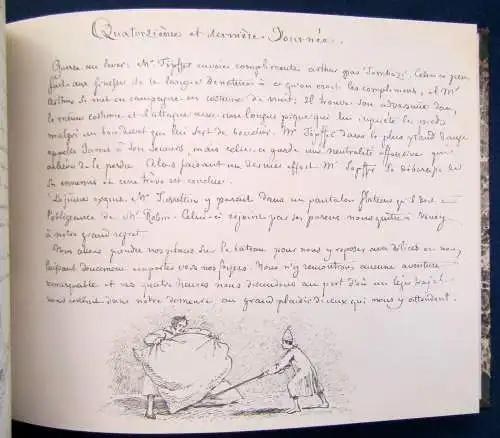 Quatorzième et dernière Journée.
Guerre au lever. Mr Töpffer envoie complimenter Arthur par Tombazi. Celui-ci peu
fait aux finesses de la langue dénature à ce qu'on croit les complimens, et Mr
Arthur se met en campagne en costume de nuit. Il trouve son adversaire dans
le même costume et l'attaque avec une longue pique qui lui le
malgré un qui lui sert de bouclier. Mr Töpffer dans le plus grand danger
appelle à son secours, mais celui-ci garde une neutralité offensive qui
achève de le perdre. Alors faisant un dernier effort Mr Töpffer se débarrasse de
ses ennemis et une trève est conclue.
Déjeuner soigné. Mr y parait dans un pantalon flatteur qu'il doit à
l'obligeance de Mr Robin. Celui-ci rejoint par ses parens nous quitte à Vevey
à notre grand regret.
Nous allons prendre nos places sur le bateau pour nous y reposer avec délices en nous
laissant doucement emporter vers nos foyers. Nous n'y rencontrons aucune aventure
remarquable et vers quatre heures nous descendons au port d'où un léger trajet
nous ramène dans notre demeure au grand plaisir de ceux qui nous y attendent.